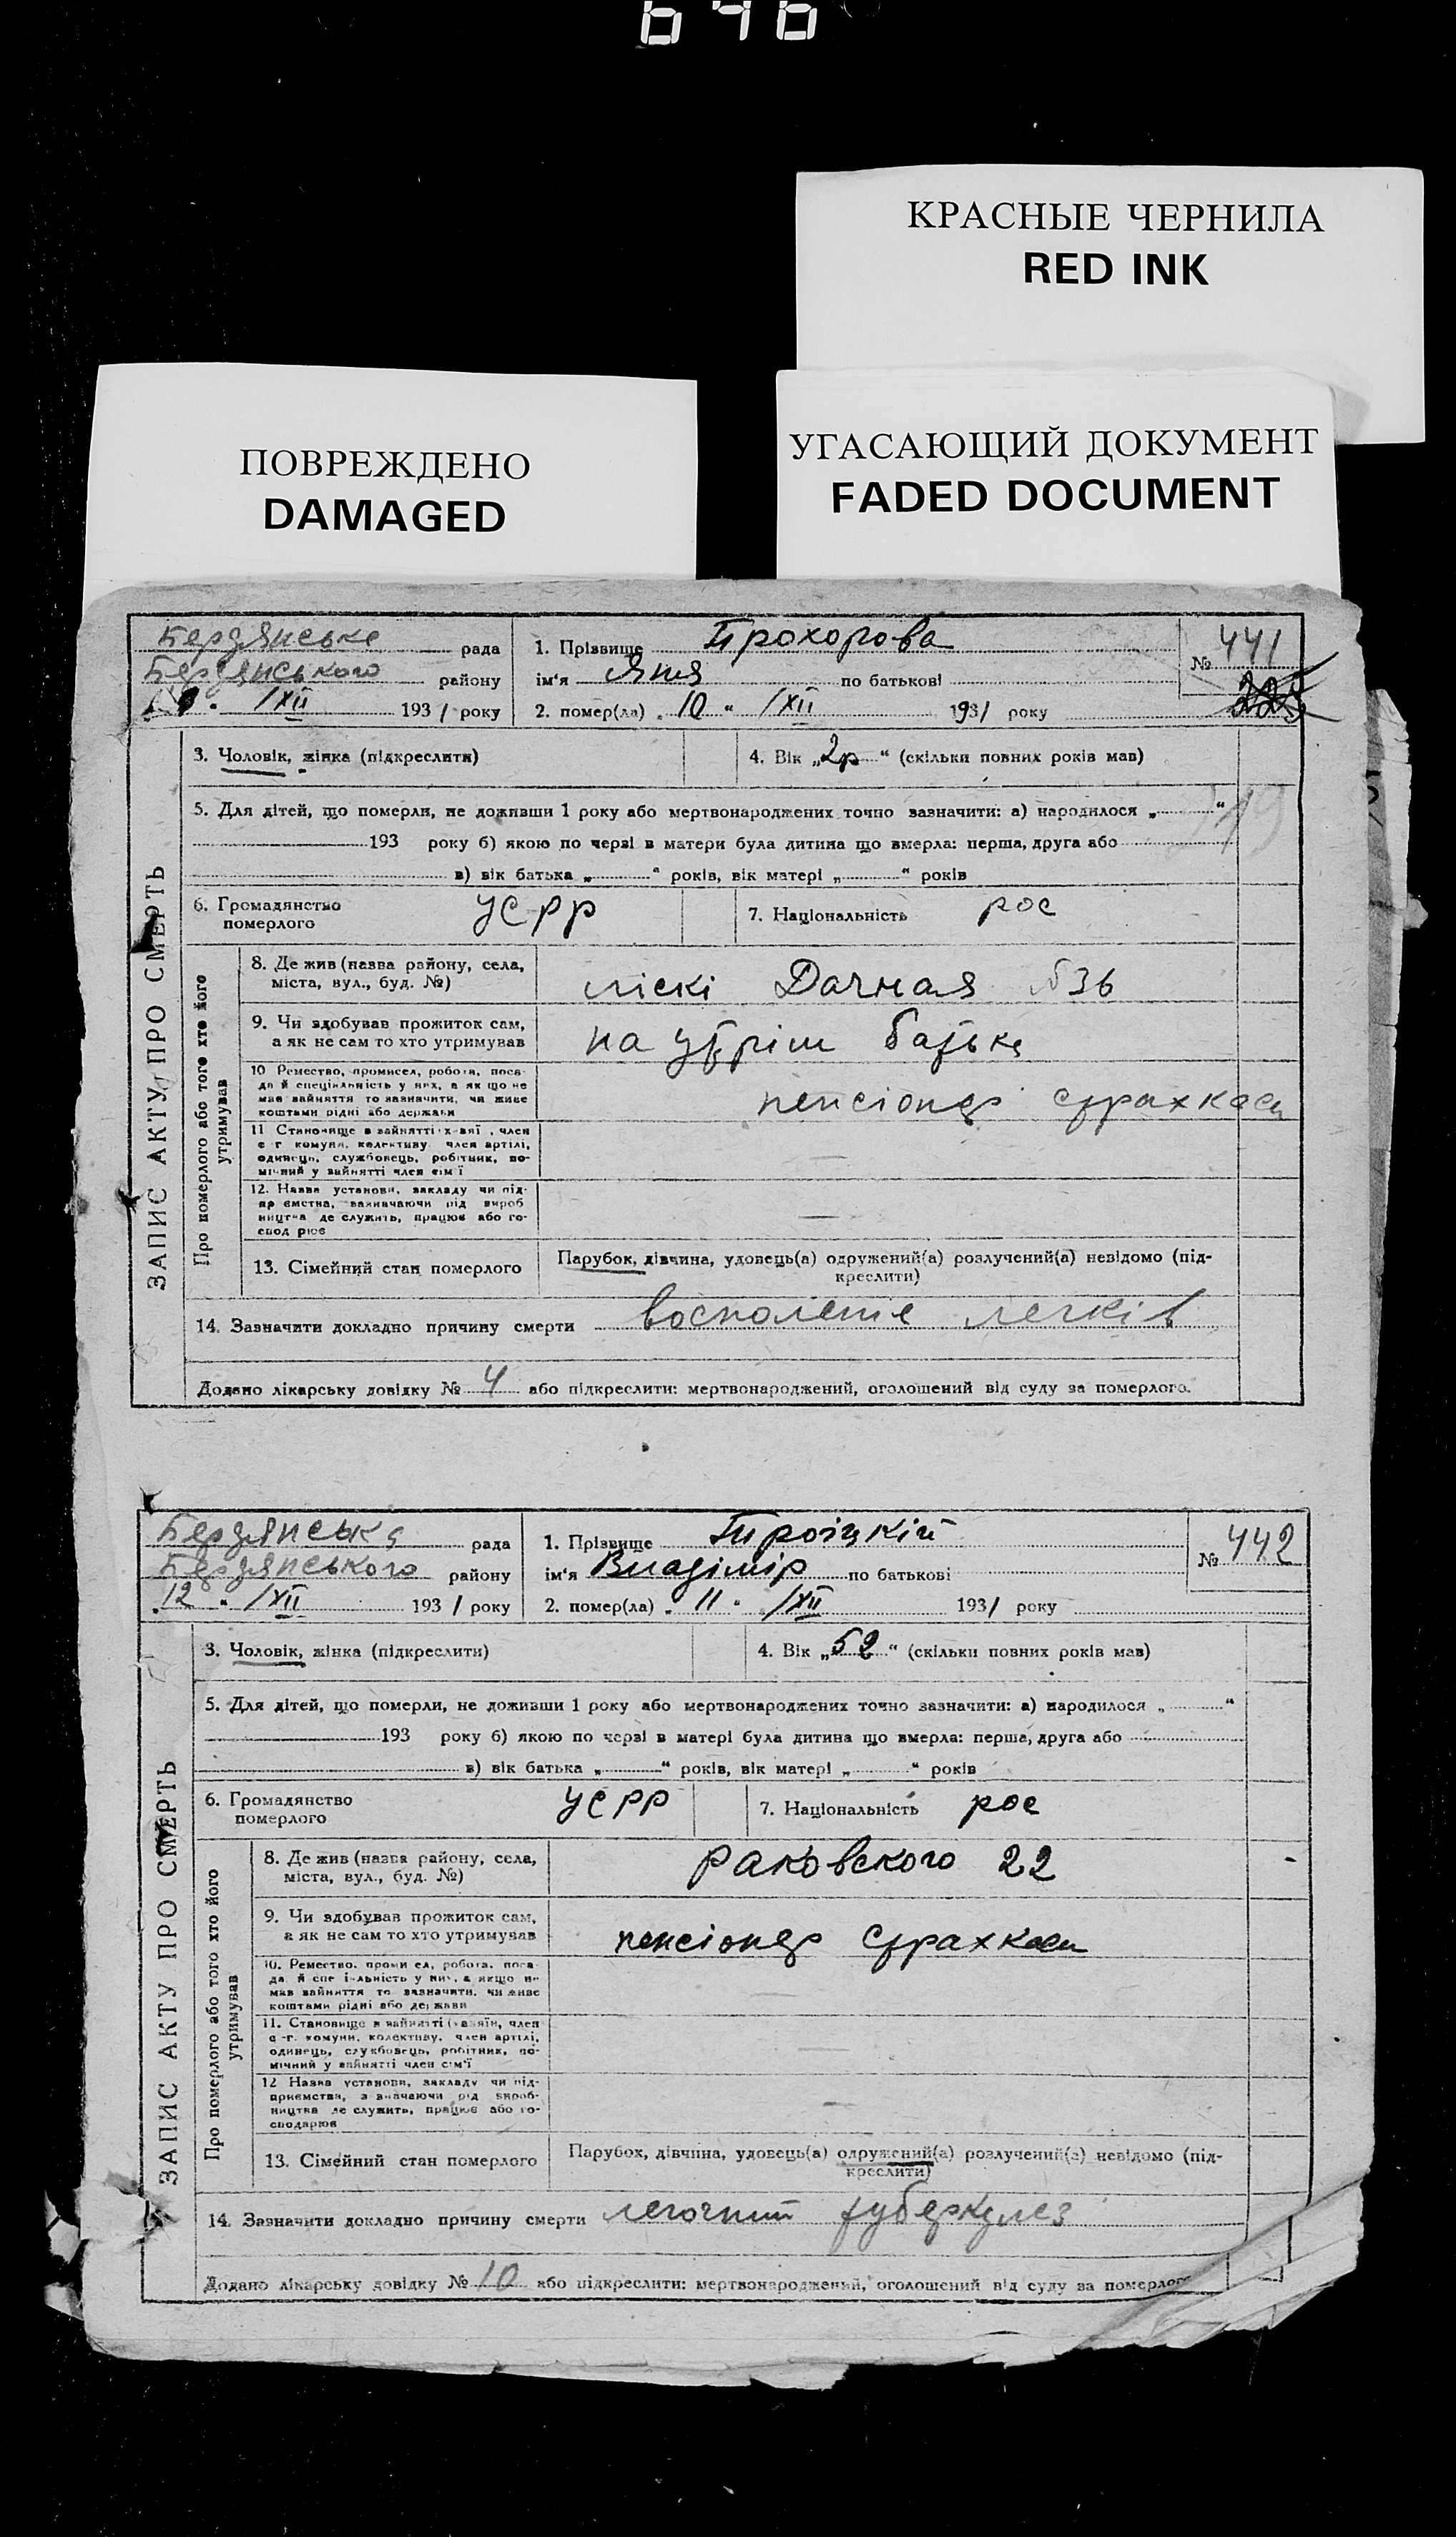 646
КРАСНЫЕ ЧЕРНИЛА
RED INK
ПОВРЕЖДЕНО
DAMAGED
УГАСАЮЩИЙ ДОКУМЕНТ
FADED DOCUMENT
ЗАПИС АКТУ ПРО СМЕРТЬ
Бердянське рада
Бердянського району
/XII 1931 року
1. Прізвище Прохорова
ім'я Яня по батькові
2. помер(ла) „10" /XII 1931 року
№ 441
225
3. Чоловік, жінка (підкреслити)
4. Вік „2р" (скільки повних років мав)
5. Для дітей, що померли, не доживши 1 року або мертвонароджених точно зазначити: а) народилося „ "
193 року б) якою по черзі в матери була дитина що вмерла: перша, друга або
в) вік батька „ " років, вік матері „ " років
6. Громадянство померлого УСРР
7. Національність рос
Про померлого або того хто його утримував
8. Де жив (назва району, села, міста, вул., буд. №)
ліскі Дачная №36
9. Чи здобував прожиток сам, а як не сам то хто утримував
на утрім батька
10 Ремество, промисел, робота, посада й спеціальність у них, а як що не мав зайняття то зазначити, чи живе коштами рідні або держави
пенсіонер страхкаси
11 Становище в зайнятті член с г комуни, колективу член артілі, одинець, службовець, робітник, помічний у зайнятті член сім'ї
—
12. Назва установи, закладу чи підприємства, зазначаючи рід виробництва де служить, працює або господарює
—
13. Сімейний стан померлого
Парубок, дівчина, удовець(а) одружений(а) розлучений(а) невідомо (підкреслити)
14. Зазначити докладно причину смерти воспаленіе легків
Додано лікарську довідку № 4 або підкреслити: мертвонароджений, оголошений від суду за померлого.
ЗАПИС АКТУ ПРО СМЕРТЬ
Бердянська рада
Бердянського району
„12" /XII 1931 року
1. Прізвище Троіцкій
ім'я Владімір по батькові
2. помер(ла) „11" /XII 1931 року
№ 442
3. Чоловік, жінка (підкреслити)
4. Вік „52" (скільки повних років мав)
5. Для дітей, що померли, не доживши 1 року або мертвонароджених точно зазначити: а) народилося „ "
193 року б) якою по черзі в матері була дитина що вмерла: перша, друга або
в) вік батька „ " років, вік матері „ " років
6. Громадянство померлого УСРР
7. Національність рос
Про померлого або того хто його утримував
8. Де жив (назва району, села, міста, вул., буд. №)
Раковского 22
9. Чи здобував прожиток сам, а як не сам то хто утримував
пенсіонер страхкаси
10. Ремество, промисел, робота, посада й спеціальність у них, а якщо не мав зайняття то зазначити, чи живе коштами рідні або держави
—
11. Становище в зайнятті (хазяїн, член с-г. комуни, колективу, член артілі, одинець, службовець, робітник, помічний у зайнятті член сім'ї
—
12 Назва установи, закладу чи підприємства, зазначаючи рід виробництва де служить, працює або господарює
—
13. Сімейний стан померлого
Парубок, дівчина, удовець(а) одружений(а) розлучений(а) невідомо (підкреслити)
14. Зазначити докладно причину смерти легочний туберкулез
Додано лікарську довідку № 10 або підкреслити: мертвонароджений, оголошений від суду за померлого